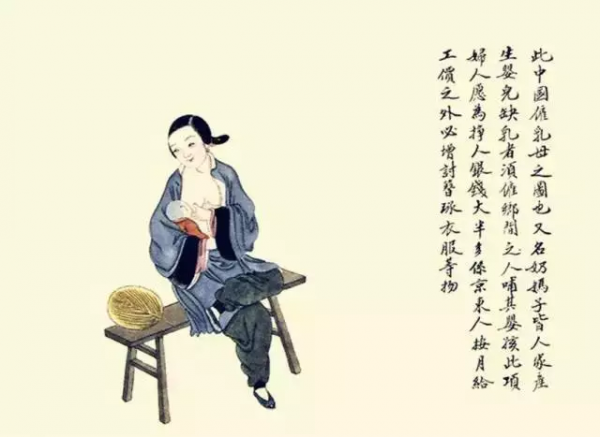 此中國僱乳母之圖也又名奶媽子皆人家產
生嬰兒缺乳者須僱鄉間之人哺其嬰孩此項
婦人愿為掙人銀錢大半多係京東人按月給
工價之外必增討簪環衣服等物